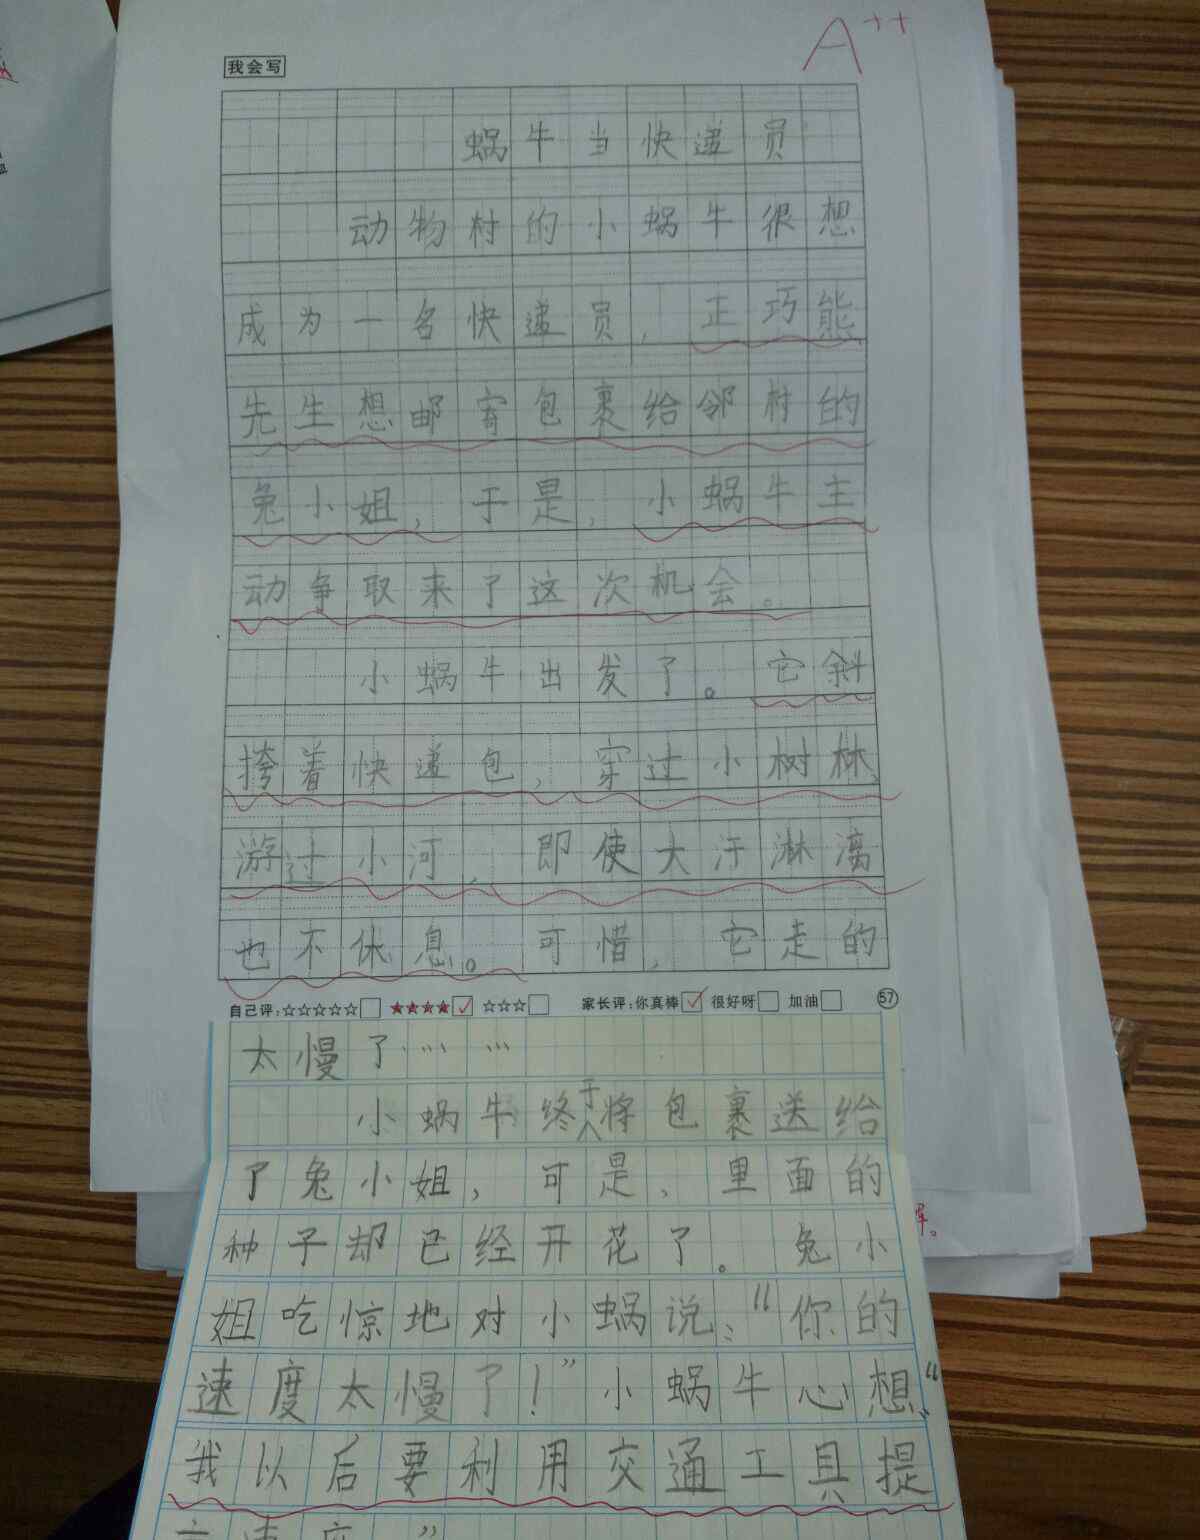 A++
我会写
蜗牛当快递员
动物村的小蜗牛很想
成为一名快递员，正巧熊
先生想邮寄包裹给邻村的
兔小姐，于是，小蜗牛主
动争取来了这次机会。
小蜗牛出发了。它斜
挎着快递包，穿过小树林、
游过小河，即使大汗淋漓
也不休息。可惜，它走的
自己评：☆☆☆☆☆□ ★★★★☑ ☆☆☆□ 家长评：你真棒☑ 很好呀□ 加油□ 57
太慢了……
小蜗牛终于将包裹送给
了兔小姐，可是，里面的
种子却已经开花了。兔小
姐吃惊地对小蜗说：“你的
速度太慢了！”小蜗牛心想：“
我以后要利用交通工具提
速度”